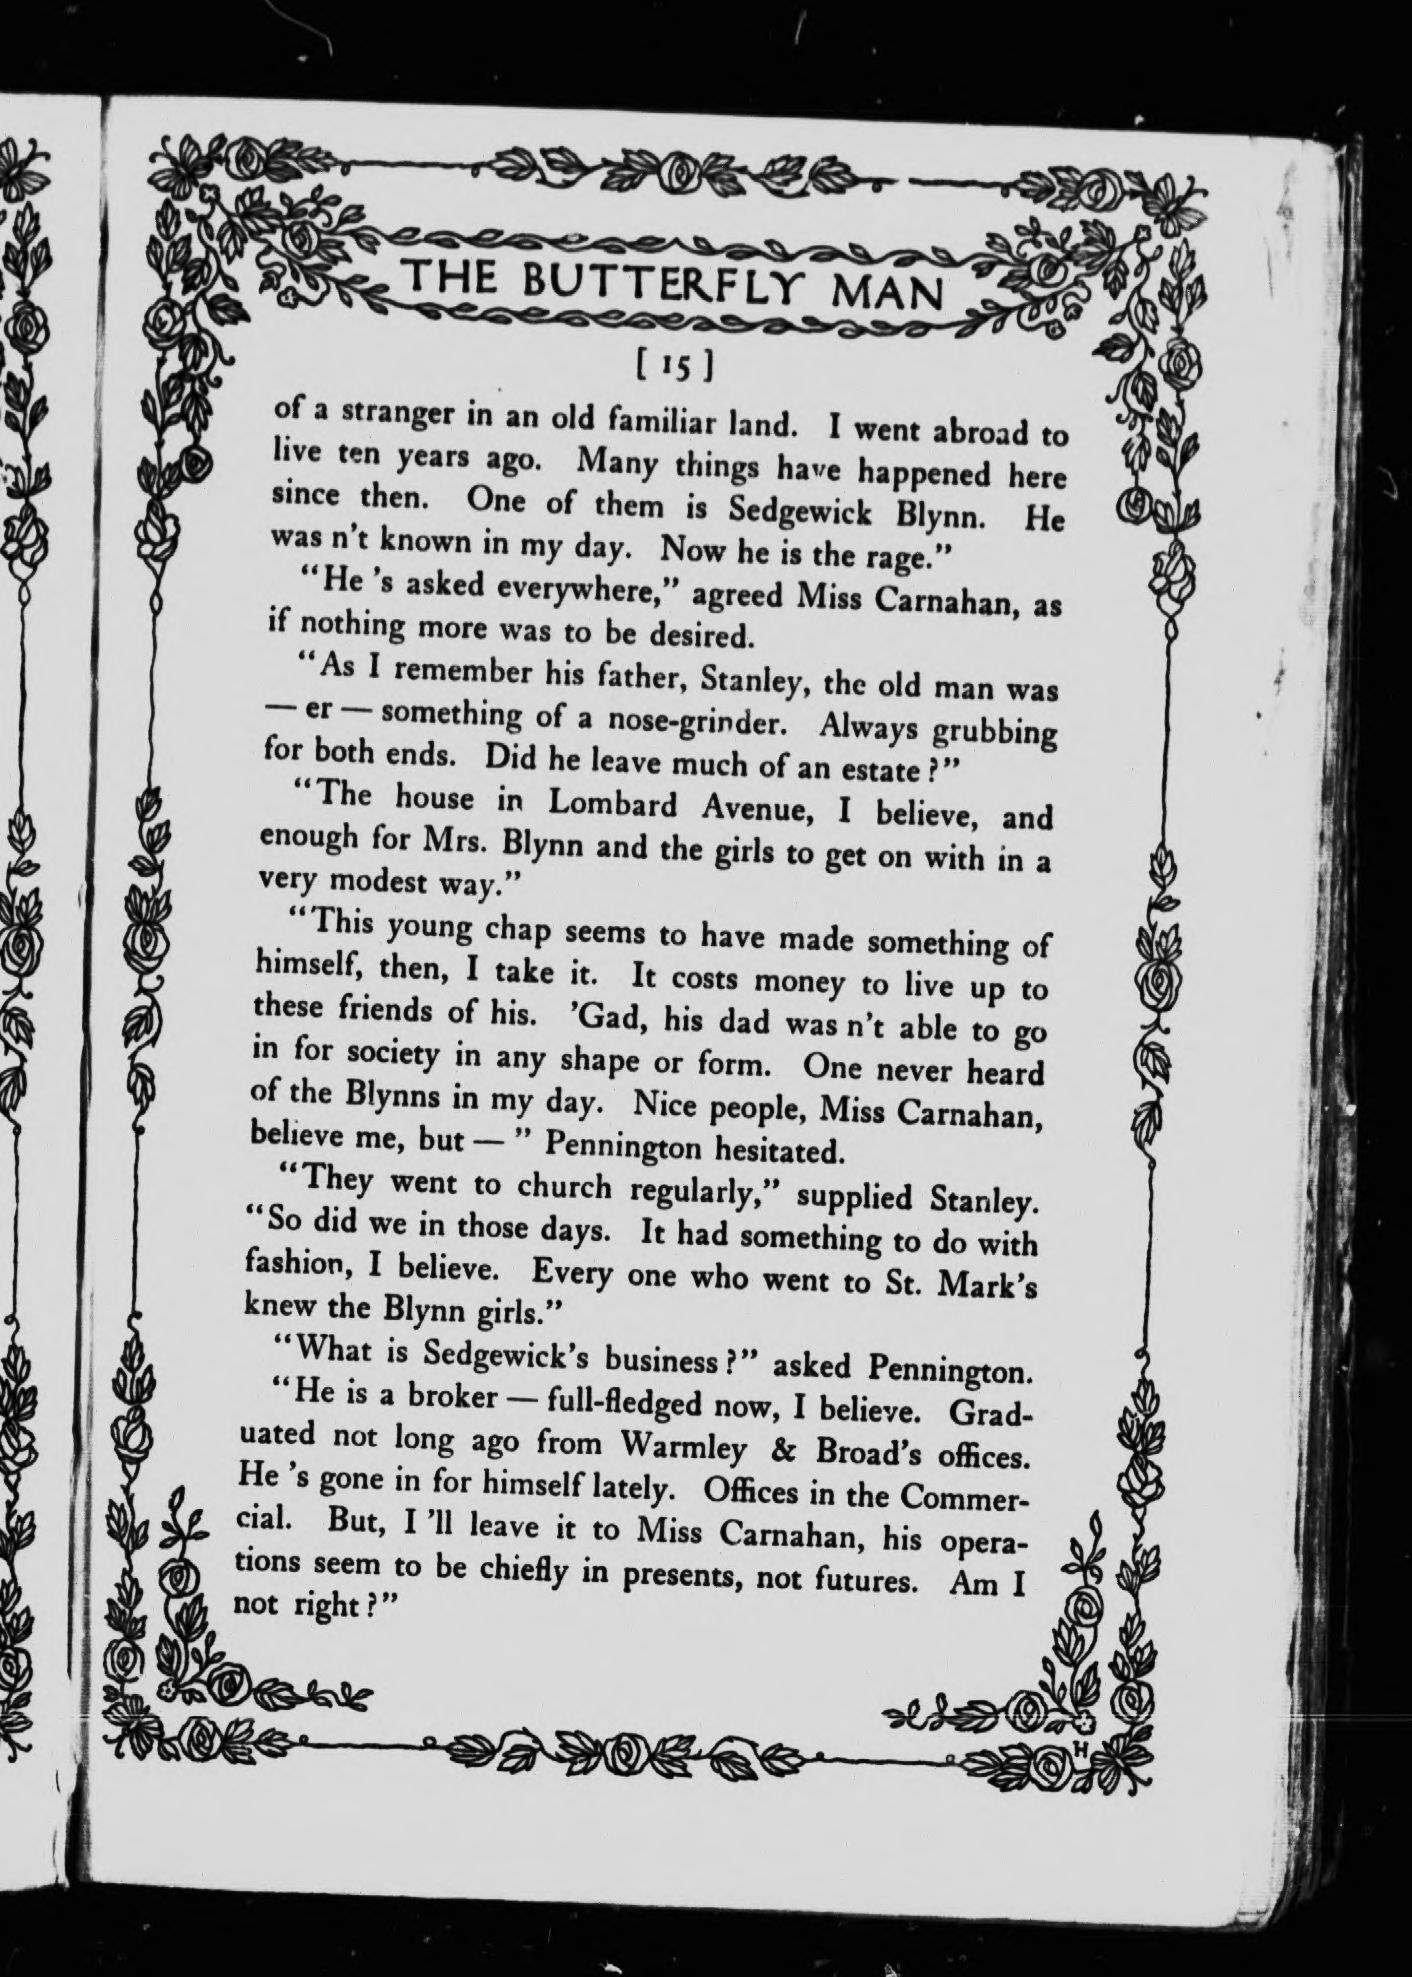 THE BUTTERFLY MAN
[ 15 ]
of a stranger in an old familiar land. I went abroad to
live ten years ago. Many things have happened here
since then. One of them is Sedgewick Blynn. He
was n't known in my day. Now he is the rage."
"He 's asked everywhere," agreed Miss Carnahan, as
if nothing more was to be desired.
"As I remember his father, Stanley, the old man was
— er — something of a nose-grinder. Always grubbing
for both ends. Did he leave much of an estate?"
"The house in Lombard Avenue, I believe, and
enough for Mrs. Blynn and the girls to get on with in a
very modest way."
"This young chap seems to have made something of
himself, then, I take it. It costs money to live up to
these friends of his. 'Gad, his dad was n't able to go
in for society in any shape or form. One never heard
of the Blynns in my day. Nice people, Miss Carnahan,
believe me, but — " Pennington hesitated.
"They went to church regularly," supplied Stanley.
"So did we in those days. It had something to do with
fashion, I believe. Every one who went to St. Mark's
knew the Blynn girls."
"What is Sedgewick's business?" asked Pennington.
"He is a broker — full-fledged now, I believe. Grad-
uated not long ago from Warmley & Broad's offices.
He 's gone in for himself lately. Offices in the Commer-
cial. But, I 'll leave it to Miss Carnahan, his opera-
tions seem to be chiefly in presents, not futures. Am I
not right?"
H